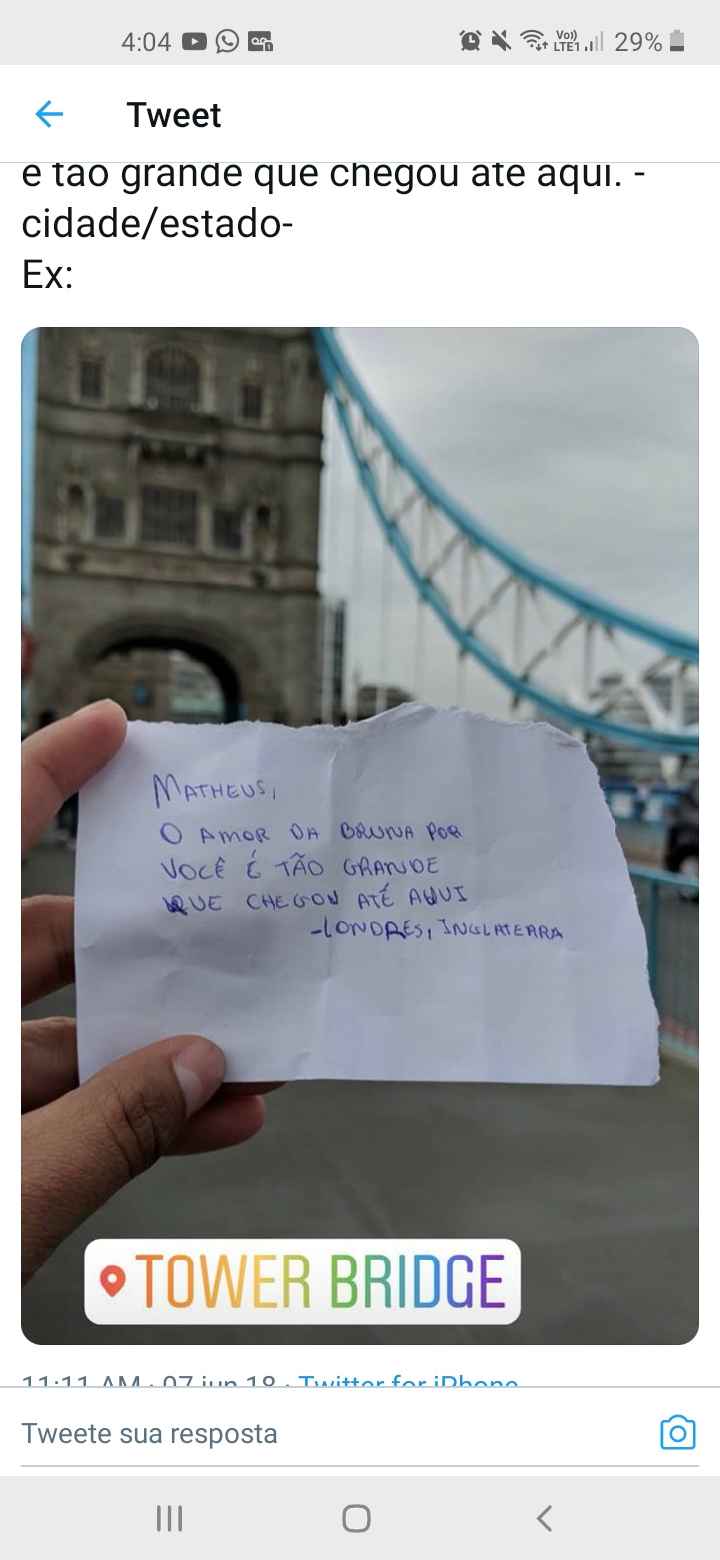 4:04
Vo)) LTE1 29%
Tweet
e tão grande que chegou até aqui. -
cidade/estado-
Ex:
MATHEUS,
O AMOR DA BRUNA POR
VOCÊ É TÃO GRANDE
QUE CHEGOU ATÉ AQUI
-LONDRES, INGLATERRA
TOWER BRIDGE
11:11 AM · 07 jun 18 · Twitter for iPhone
Tweete sua resposta